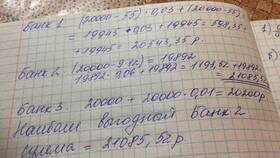 Банк 1 (20000-55)·0,03+(20000-55)
= 19945·0,03+19945=598,35
+19945=20543,35 р
Банк 2 (20000-9·12)=19892
19892·0,06+19892=1193,52+19892
=21085,52
Банк 3 20000+20000·0,01=20200р
Наибол выгодной Банк 2
сумма=21085,52р